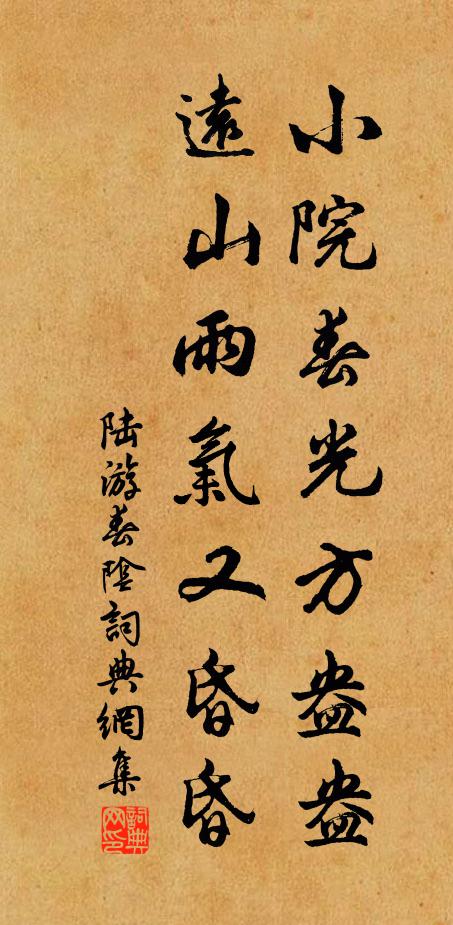 小院春光方盎盎
遠山雨氣又昏昏
陆游春陰詞典網集
詞典网印